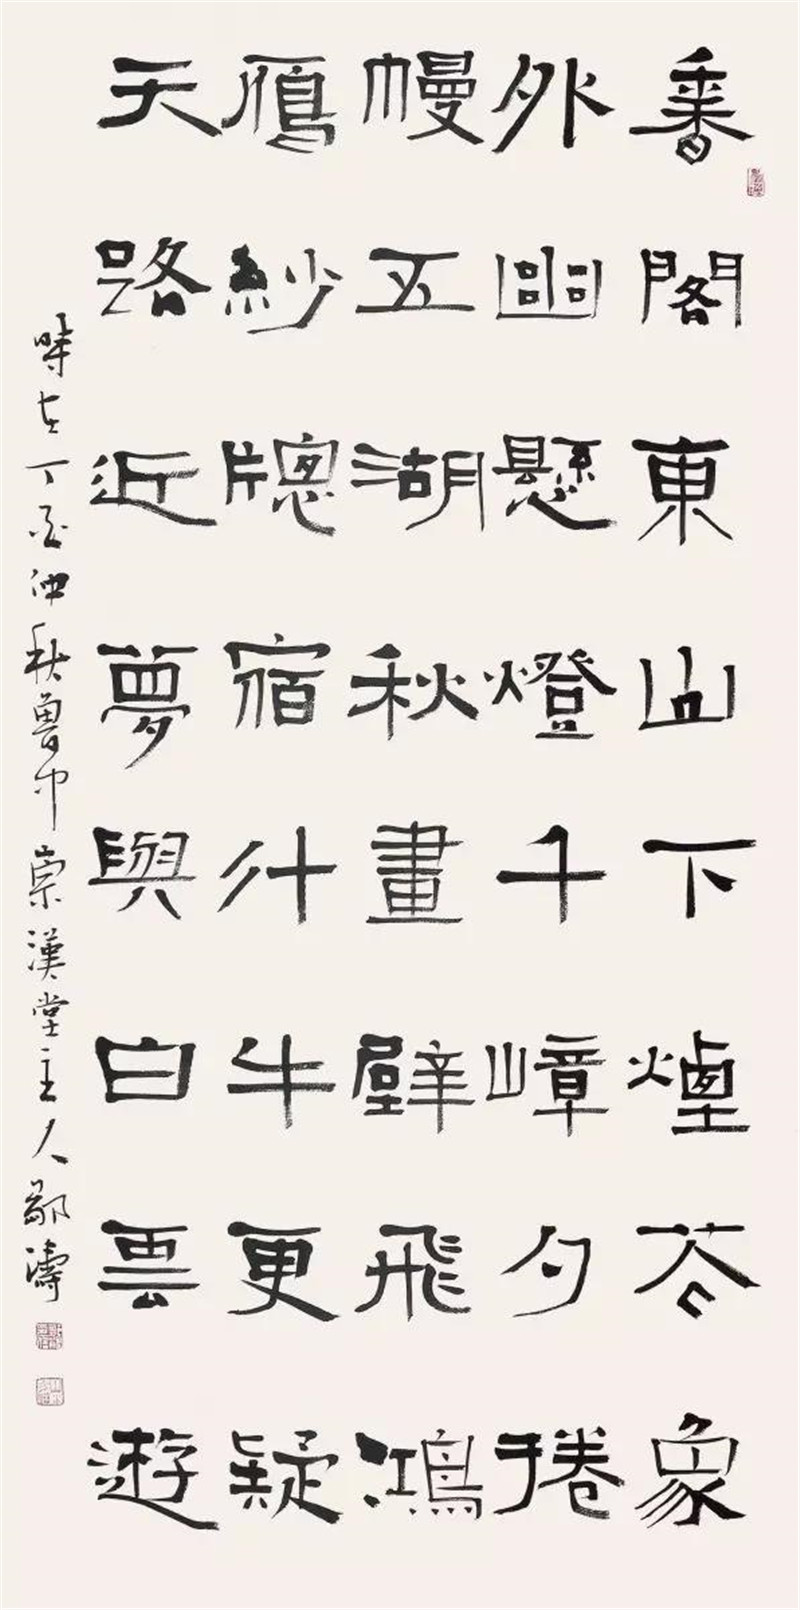 香閣東山下煙花象
外幽懸燈千嶂夕捲
幔五湖秋畫壁飛鴻
鴈紗牕宿斗牛更疑
天路近夢與白雲遊
時在丁酉仲秋魯中崇漢堂主人濤